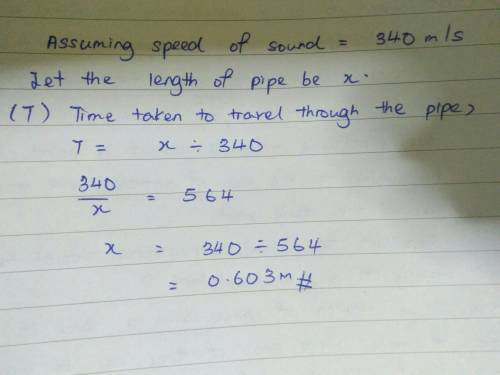 Assuming speed of sound = 340 m/s
Let the length of pipe be x.
(T) Time taken to travel through the pipe,
T = x ÷ 340
340/x = 564
x = 340 ÷ 564
= 0.603m #